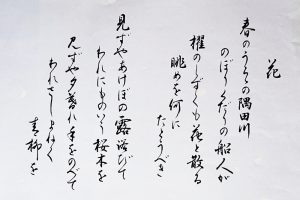 花
春のうらゝの隅田川
のぼりくだりの船人が
櫂のしずくも花と散る
眺めを何に
たとうべき
見ずやあけぼの露浴びて
われにものいう桜木を
見ずや夕暮れ手をのべて
われさしまねく
青柳を